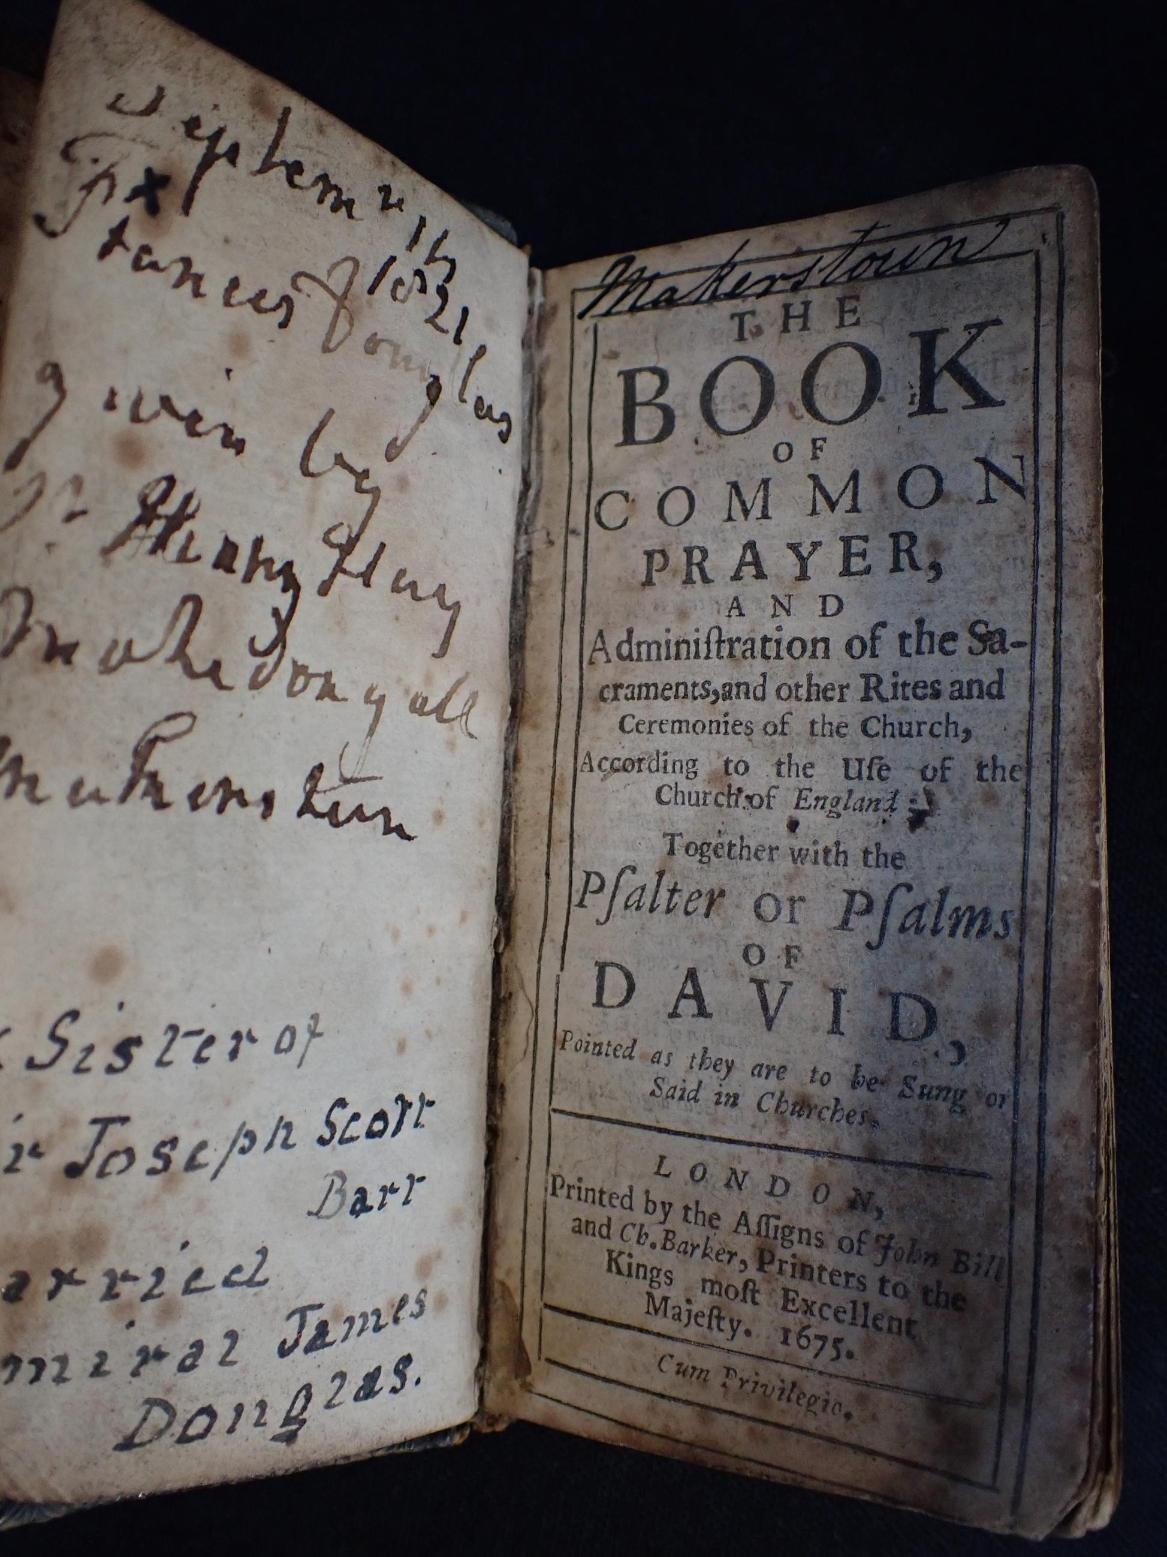 Septem
1821
Douglas
given by
Henry Hay
Sister of
Joseph Scott
Barr
arried
miral James
Douglas.
Makerstown
THE
BOOK
OF
COMMON
PRAYER,
AND
Adminiſtration of the Sa-
craments, and other Rites and
Ceremonies of the Church,
According to the Uſe of the
Church of England ;
Together with the
Pſalter or Pſalms
OF
DAVID,
Pointed as they are to be Sung or
Said in Churches.
LONDON,
Printed by the Aſſigns of John Bill
and Ch. Barker, Printers to the
Kings moſt Excellent
Majeſty. 1675.
Cum Privilegio.